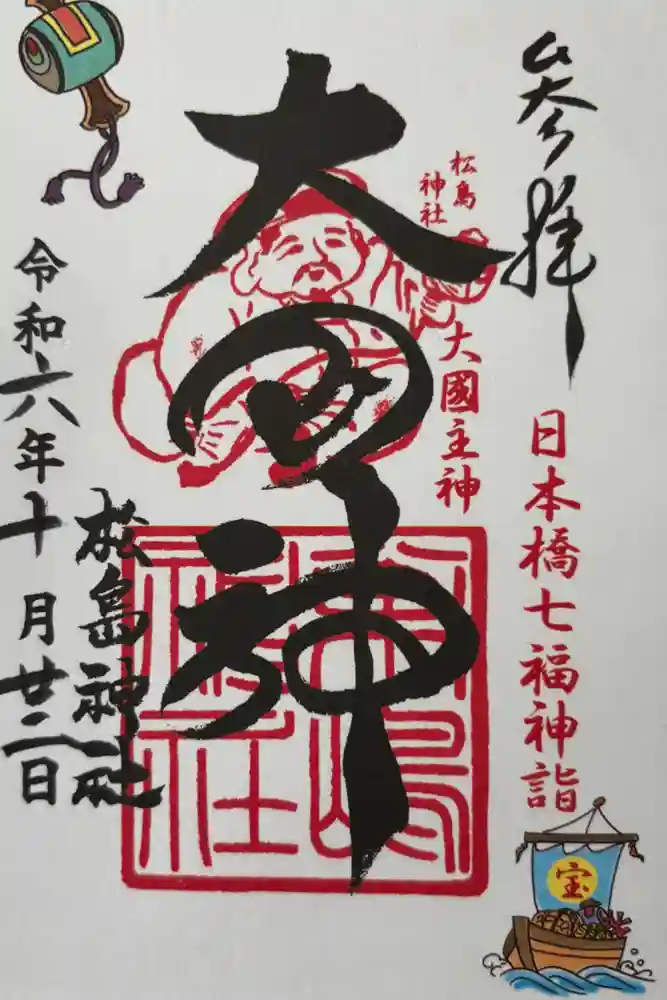 参拝
日本橋七福神詣
宝
松島
神社
大國主神
大国神
松嶋
神社
松島神社
令和六年十月廿二日